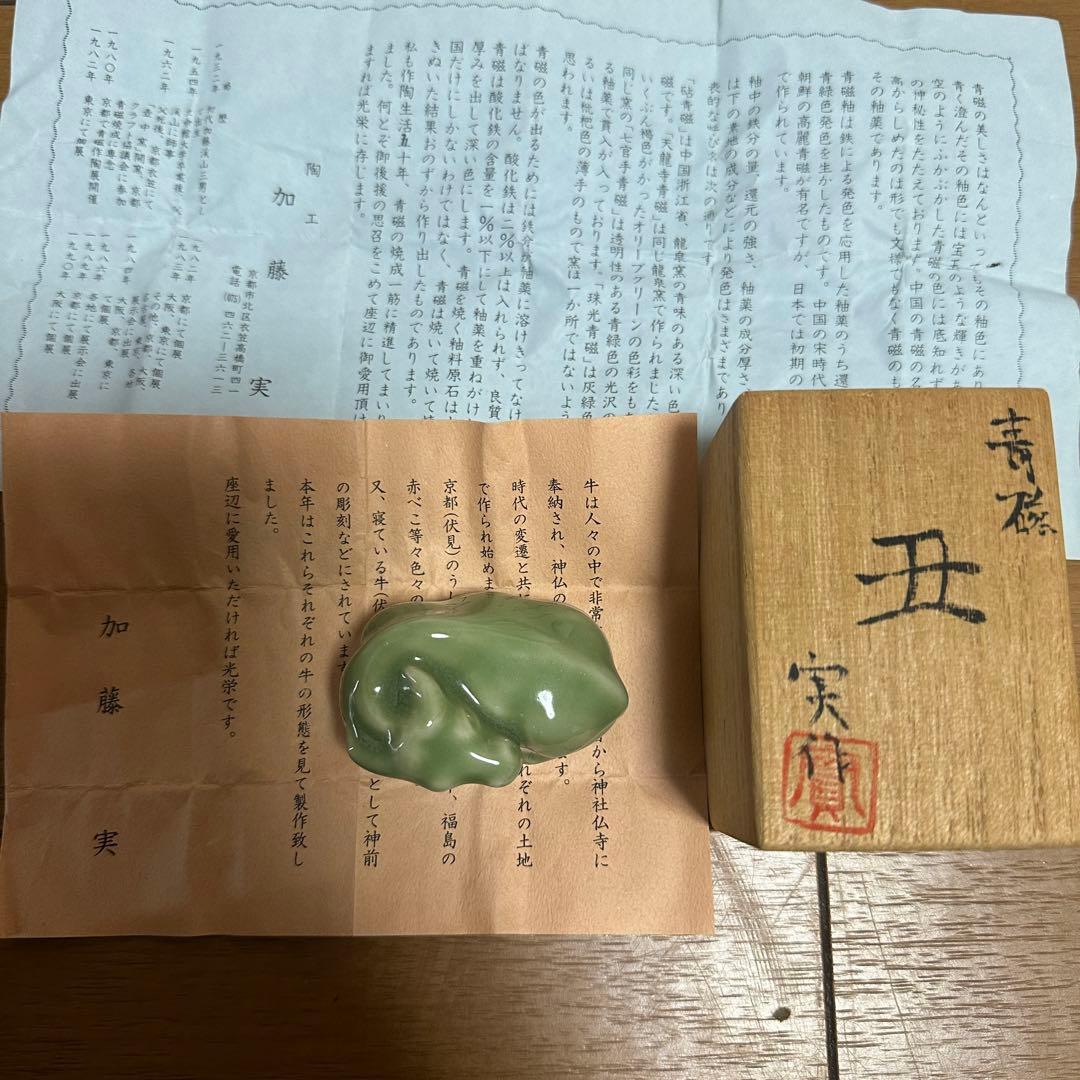 青磁の美しさはなんといってもその釉色にあり
青く澄んだその釉色には宝玉のような輝きがあ
空のようにふかぶかした青磁の色には底知れず
の神秘性をたたえております。中国の青磁の名
高からしめたのは形でも文様でもなく青磁のも
その釉薬であります。
青磁釉は鉄による発色を応用した釉薬のうち還
青緑色発色を生かしたものです。中国の宋時代
朝鮮の高麗青磁が有名ですが、日本では初期の
で作られています。
釉中の鉄分の量、還元の強さ、釉薬の成分厚さ
は下の素地の成分などにより発色はさまざまであり
表的なよび名は次の通りです。
「砧青磁」は中国浙江省、龍泉窯の青味のある深い色
磁です。「天龍寺青磁」は同じ龍泉窯で作られました
いくぶん褐色がかったオリーブグリーンの色彩をもち
同じ窯の「七官手青磁」は透明性のある青緑色の光沢の
る釉薬で貫入が入っております。「珠光青磁」は灰緑色
るいは枇杷色の薄手のもので窯は一か所ではないよう
思われます。
青磁の色が出るためには鉄分が釉薬に溶けきってなけ
ばなりません。酸化鉄は二%以上は入れられず、良質
青磁は酸化鉄の含量を一%以下にして釉薬を重ねがけ
厚みを出して深い色にします。青磁を焼く釉料原石は
国だけにしかないわけではなく、青磁は焼いて焼いて焼
きぬいた結果おのずから作り出したものであります。
私も作陶生活五十年、青磁の焼成一筋に精進してまいり
ました。何とぞ御後援の思召をこめて座辺に御愛用頂け
ますれば光栄に存じます。
陶工
加藤 実
京都市北区衣笠高橋町四一
電話(075)四六二一三六一三
略歴
一九三二年
一九五四年
一九六二年 父死後、京都衣笠にて
壺中窯開窯、京都
クラフト協議会に参加
青磁焼成に専念
一九八〇年 京都で青磁作陶展開催
一九八二年 東京にて個展
一九八二年 京都にて個展
一九八三年 大阪、東京にて個展
一九八四年
一九八六年
一九八九年 各地にて展示会に出展
一九九〇年 大阪にて個展
牛は人々の中で非常
から神社仏寺に
奉納され、神仏の
す。
時代の変遷と共に
れぞれの土地
で作られ始めま
京都(伏見)のうし
、福島の
赤べこ等々色々の
又、寝ている牛(伏
として神前
の彫刻などにされています
本年はこれらそれぞれの牛の形態を見て製作致し
ました。
座辺に愛用いただければ光栄です。
加藤 実
青磁
丑
実作
實